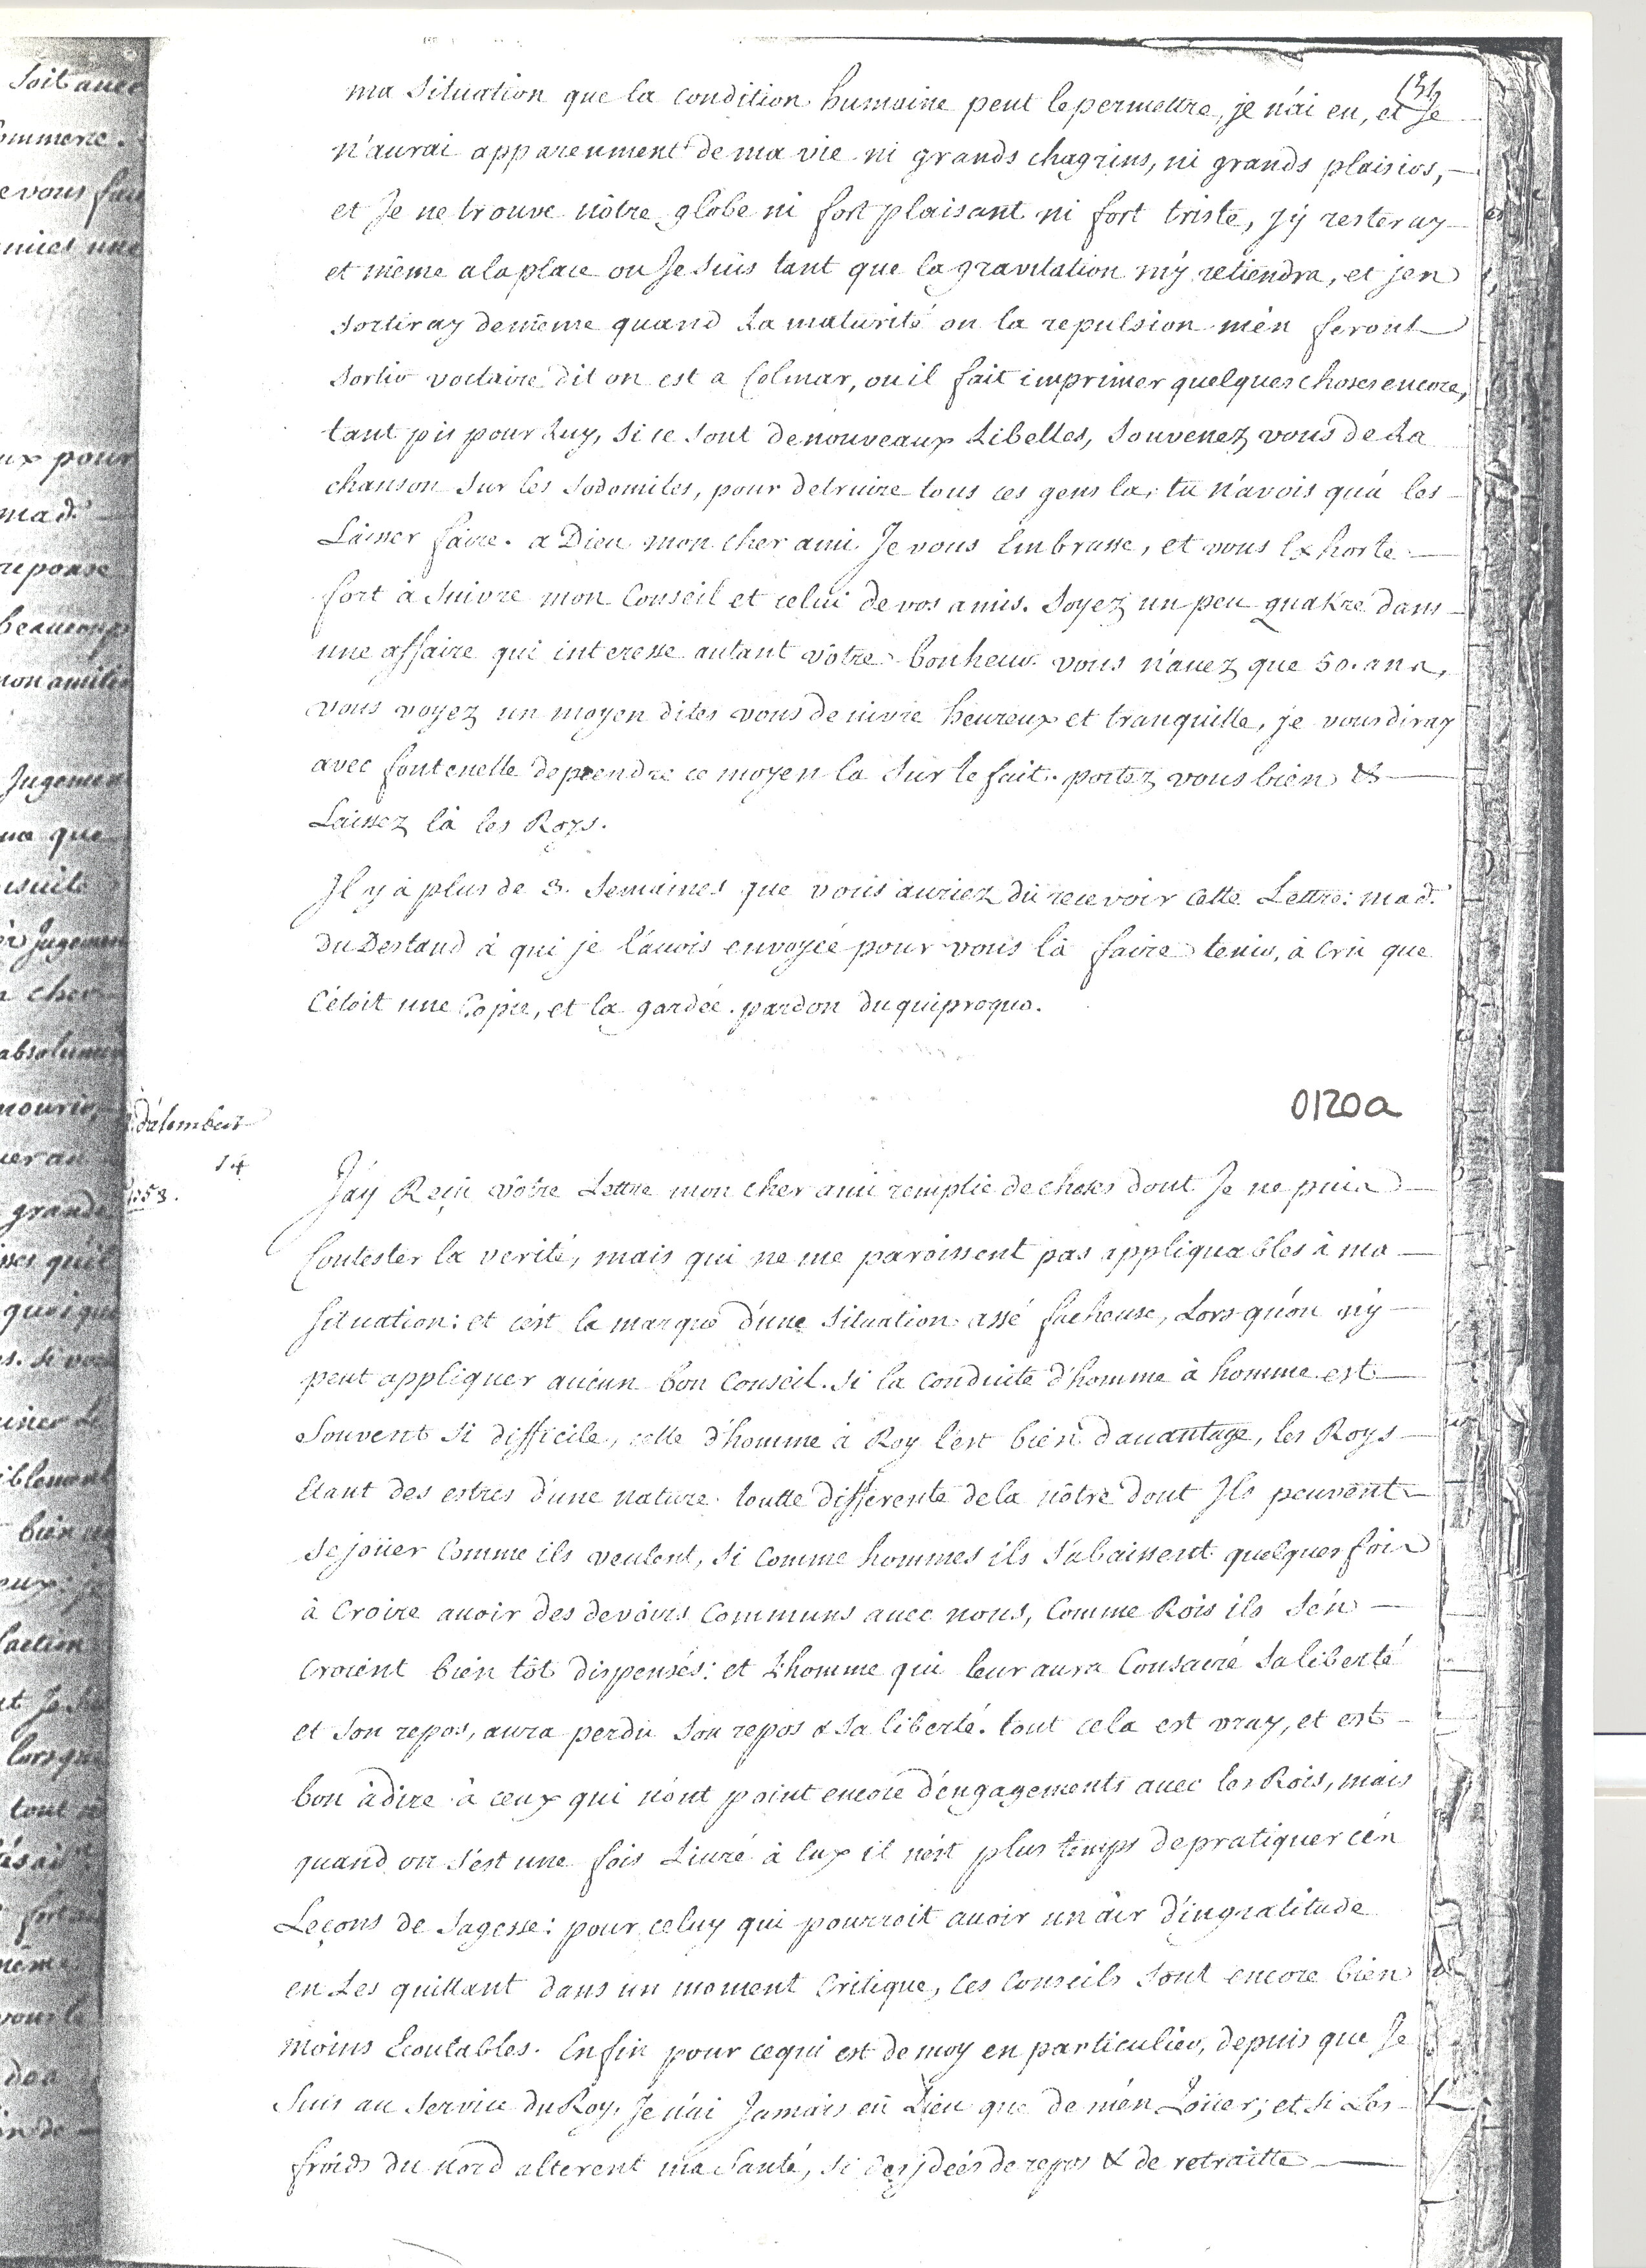 131
ma Situation que la condition humaine peut le permettre, je n'ai eu, et Je
n'aurai apparenment de ma vie ni grands chagrins, ni grands plaisirs,
et Je ne trouve nôtre globe ni fort plaisant ni fort triste, j'ÿ resteray
et même a la place ou Je suis tant que la gravitation m'y retiendra, et j'en
Sortiray de même quand La maturité ou la repulsion m'en feront
Sortir voltaire dit on est a Colmar, ou il fait imprimer quelques choses encore,
tant pis pour Luy, Si ce Sont de nouveaux Libelles, Souvenez vous de La
chanson Sur les Sodomites, pour detruire tous ces gens la, tu n'avois qu'a les
Laisser faire. a Dieu mon cher ami Je vous Embrasse, et vous Exhorte
fort à Suivre mon Conseil et celui de vos amis. Soyez un peu quakre dans
une affaire qui interesse autant vôtre bonheur vous n'avez que 50. ans,
vous voyez un moyen dites vous de vivre heureux et tranquille, je vous diray
avec fontenelle de prendre ce moyen la Sur le fait. portez vous bien &
Laissez là les Roys.
Il y à plus de 3. Semaines que vous auriez dû recevoir cette Lettre: mad.
du Deffand à qui je l'avois envoyée pour vous la faire tenir, à crû que
C'étoit une Copie, et la gardée. pardon du quiproquo.
0120a
d'alembert
14
1753.
J'ay Reçu vôtre Lettre mon cher ami remplie de choses dont Je ne puis
Contester la verité, mais qui ne me paroissent pas appliquables à ma
Situation: et c'est la marque d'une Situation assé facheuse, Lors qu'on n'y
peut appliquer aucun bon Conseil. Si la conduite d'homme à homme est
Souvent Si difficile, celle d'homme à Roy l'est bien d'avantage, les Roys
Etant des estres d'une nature toutte differente de la nôtre dont Ils peuvent
Se joüer comme ils veulent, Si comme hommes ils S'abaissent quelques fois
à Croire avoir des devoirs Communs avec nous, Comme Rois ils S'en
croient bien tôt dispensés: et L'homme qui leur aura Consacré Sa liberté
et Son repos, aura perdu Son repos & Sa liberté. tout cela est vray, et est
bon à dire à ceux qui n'ont point encore d'engagements avec les Rois, mais
quand on S'est une fois Livré à Eux il n'est plus temps de pratiquer ces
Leçons de Sagesse: pour celuy qui pourroit avoir un air d'ingratitude
en Les quittant dans un moment Critique, Ces Conseils Sont encore bien
moins Ecoutables. Enfin pour ce qui est de moy en particulier, depuis que Je
Suis au Service du Roy, Je n'ai Jamais eû Lieu que de m'en Loüer; et Si Les
froids du nord alterent ma Santé, Si des jdeés de repos & de retraitte